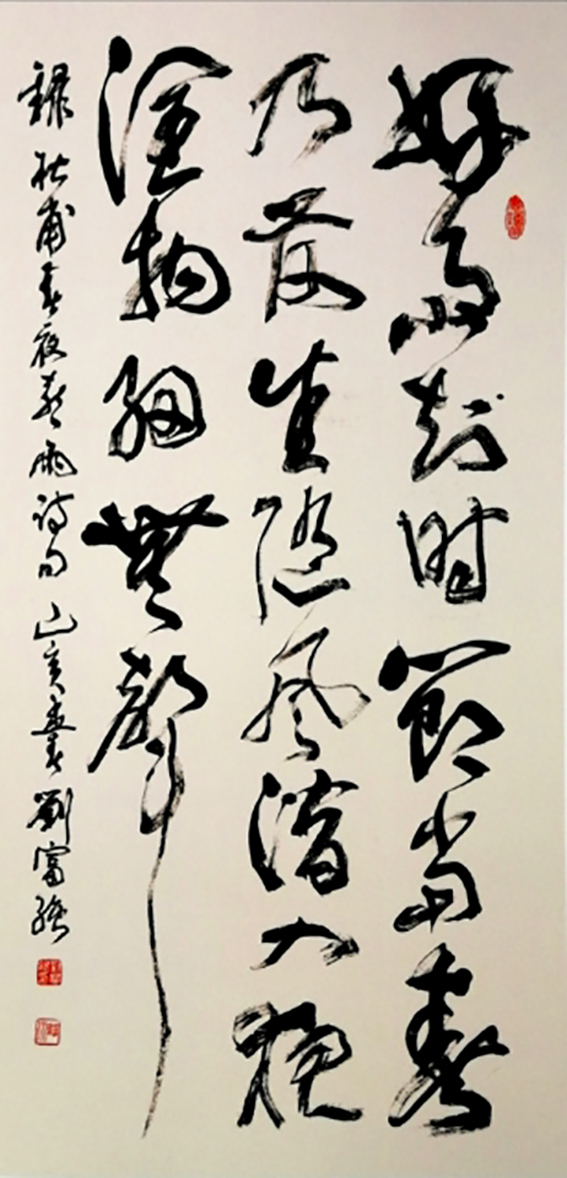 好雨知时節當春
乃發生随風潛入夜
潤物細無聲
録杜甫春夜喜雨詩句 己亥春 劉富強